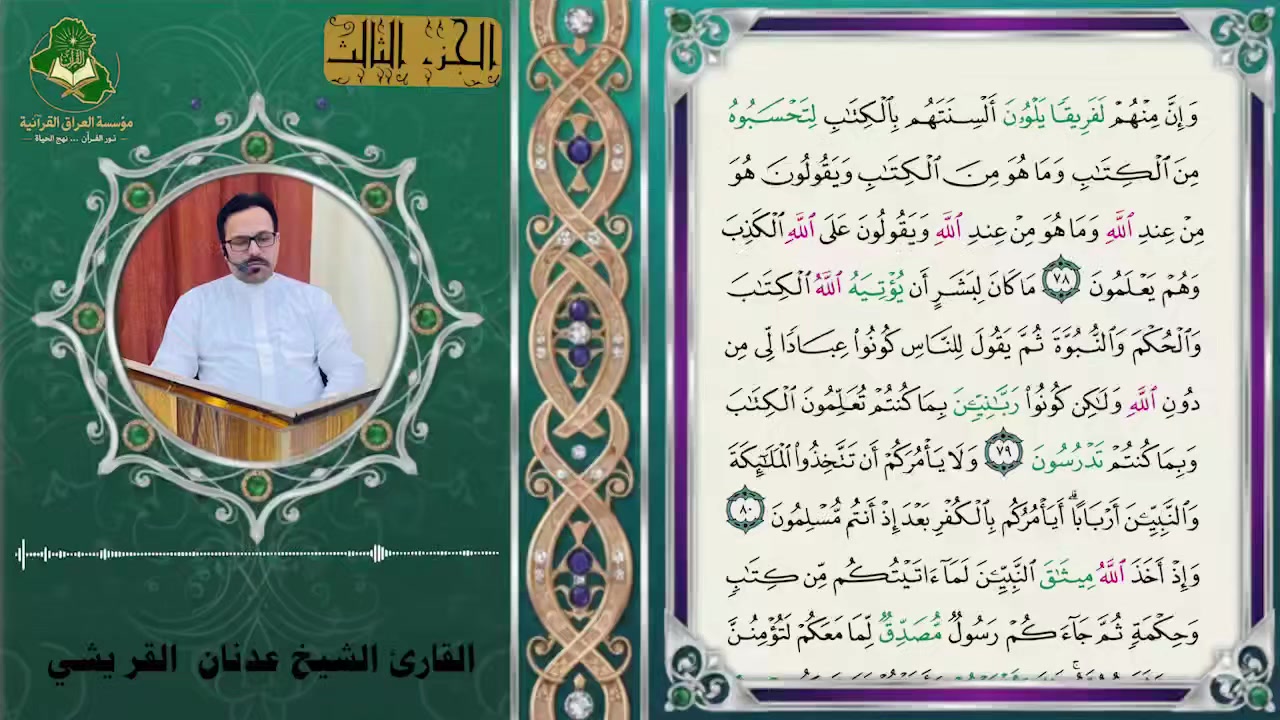 الجزء الثالث
مؤسسة العراق القرآنية
نور القرآن ... نهج الحياة
القارئ الشيخ عدنان القريشي
وَإِنَّ مِنْهُمْ لَفَرِيقًا يَلْوُۥنَ أَلْسِنَتَهُم بِٱلْكِتَٰبِ لِتَحْسَبُوهُ
مِنَ ٱلْكِتَٰبِ وَمَا هُوَ مِنَ ٱلْكِتَٰبِ وَيَقُولُونَ هُوَ
مِنْ عِندِ ٱللَّهِ وَمَا هُوَ مِنْ عِندِ ٱللَّهِ وَيَقُولُونَ عَلَى ٱللَّهِ ٱلْكَذِبَ
وَهُمْ يَعْلَمُونَ ٧٨ مَا كَانَ لِبَشَرٍ أَن يُؤْتِيَهُ ٱللَّهُ ٱلْكِتَٰبَ
وَٱلْحُكْمَ وَٱلنُّبُوَّةَ ثُمَّ يَقُولَ لِلنَّاسِ كُونُوا۟ عِبَادًا لِّى مِن
دُونِ ٱللَّهِ وَلَٰكِن كُونُوا۟ رَبَّٰنِيِّۦنَ بِمَا كُنتُمْ تُعَلِّمُونَ ٱلْكِتَٰبَ
وَبِمَا كُنتُمْ تَدْرُسُونَ ٧٩ وَلَا يَأْمُرَكُمْ أَن تَتَّخِذُوا۟ ٱلْمَلَٰٓئِكَةَ
وَٱلنَّبِيِّۦنَ أَرْبَابًا ۗ أَيَأْمُرُكُم بِٱلْكُفْرِ بَعْدَ إِذْ أَنتُم مُّسْلِمُونَ ٨٠
وَإِذْ أَخَذَ ٱللَّهُ مِيثَٰقَ ٱلنَّبِيِّۦنَ لَمَآ ءَاتَيْتُكُم مِّن كِتَٰبٍ
وَحِكْمَةٍ ثُمَّ جَآءَكُمْ رَسُولٌ مُّصَدِّقٌ لِّمَا مَعَكُمْ لَتُؤْمِنُنَّ